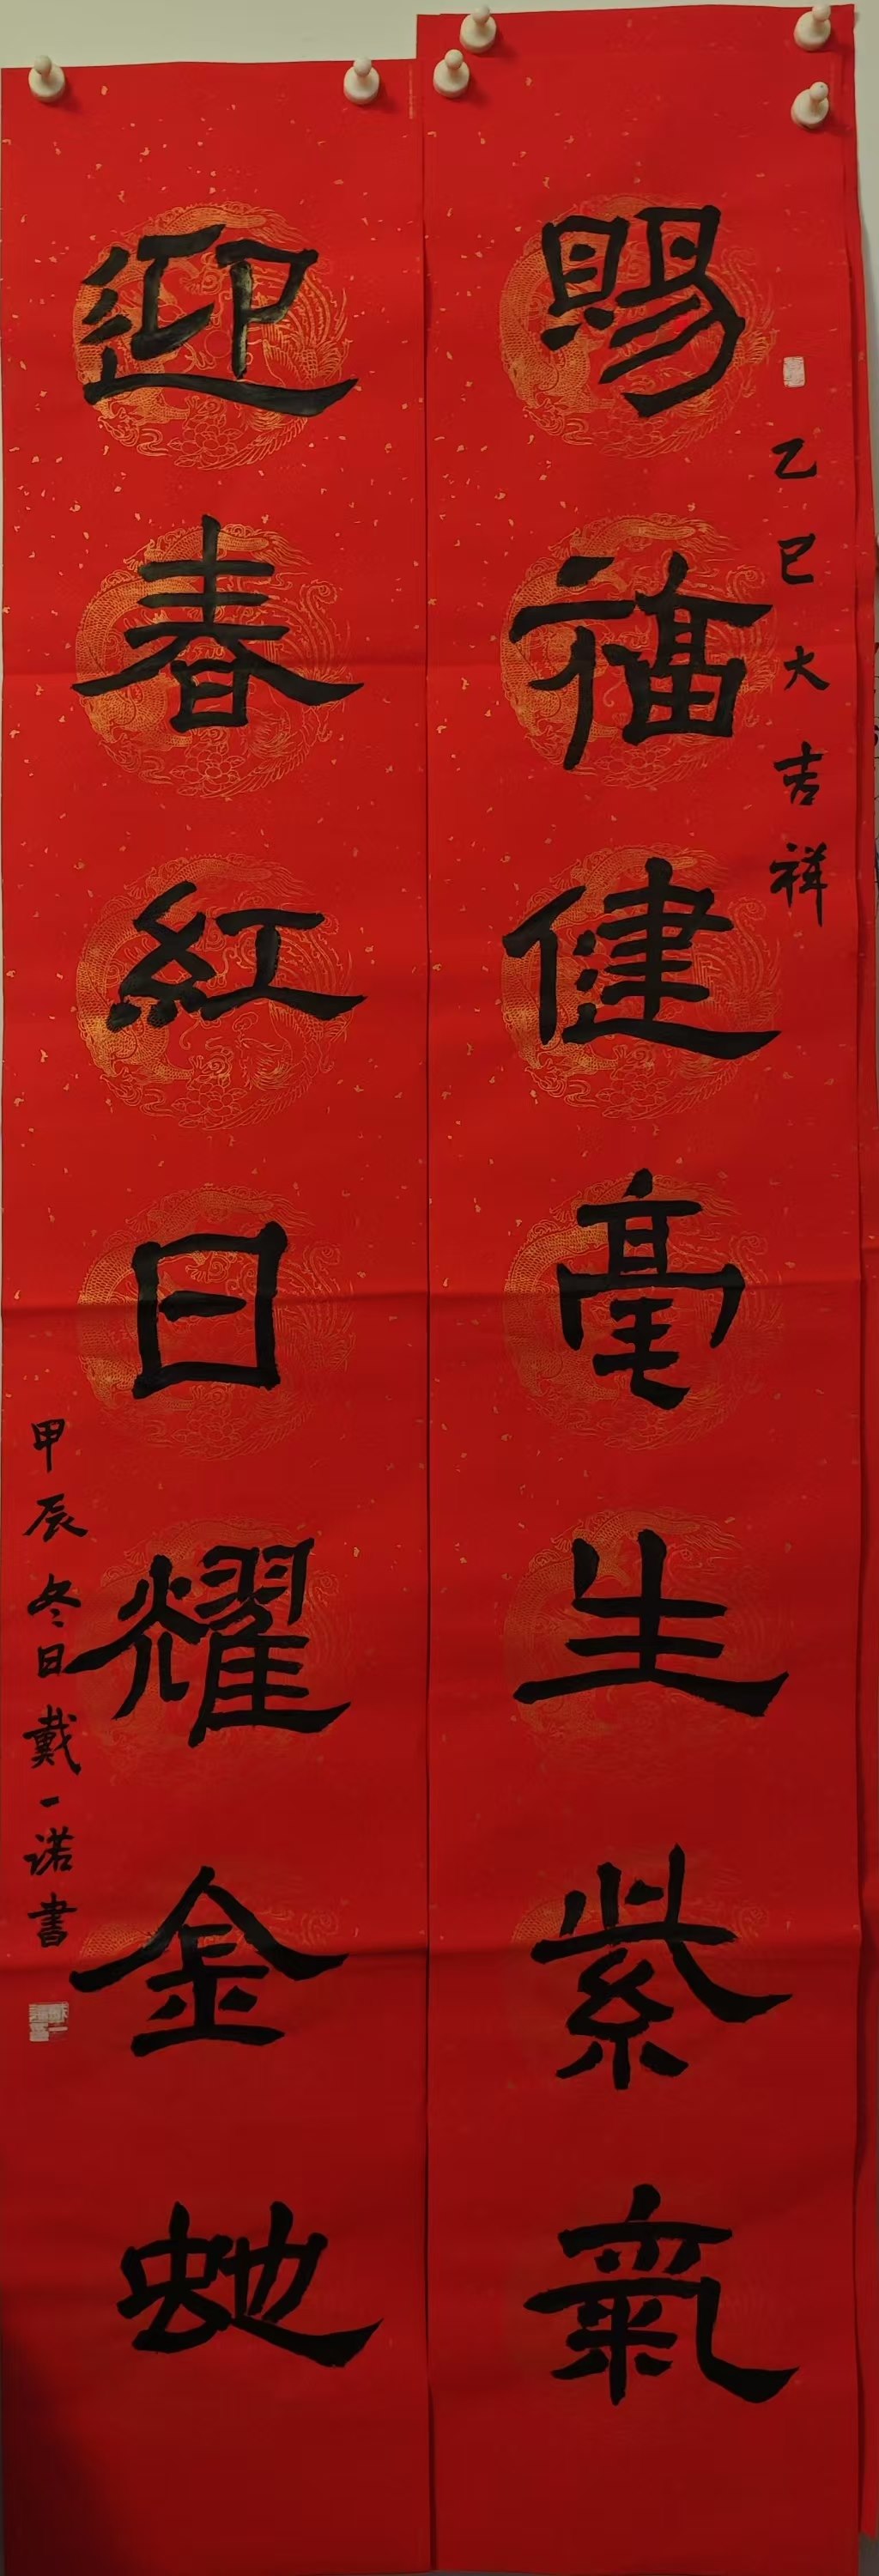 乙巳大吉祥
賜福健毫生紫氣
迎春紅日耀金虵
甲辰冬日戴一诺書